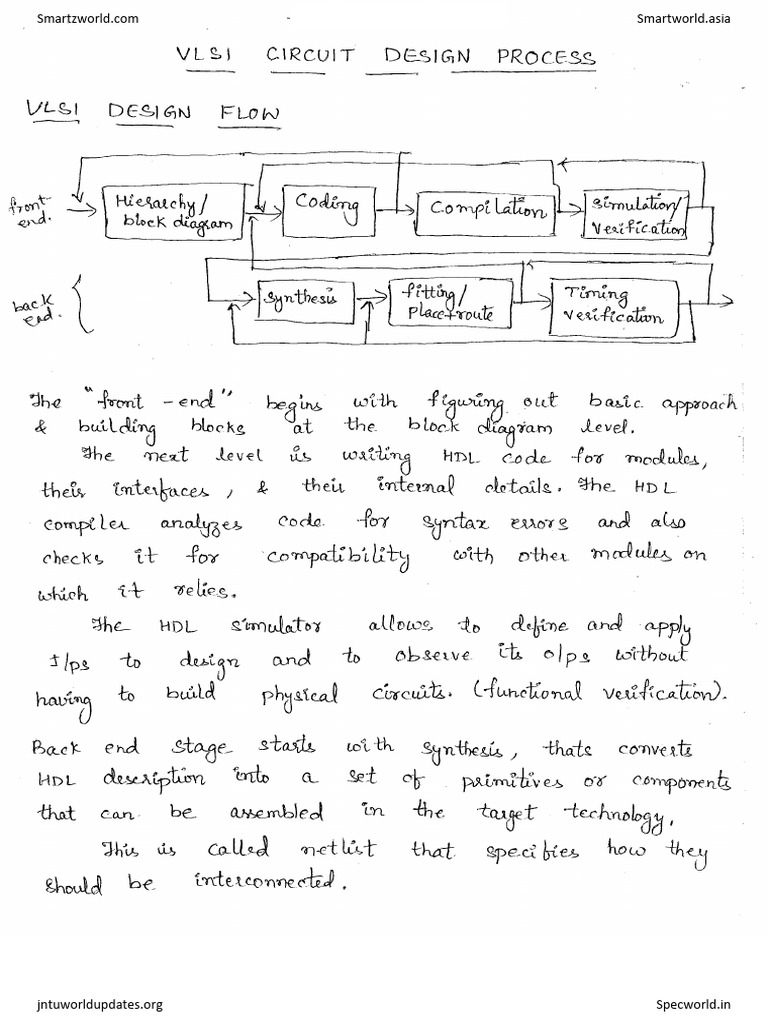 Smartzworld.com Smartworld.asia
VLSI CIRCUIT DESIGN PROCESS
VLSI DESIGN FLOW
front end.
Hierarchy/ block diagram
Coding
Compilation
Simulation/ Verification
back end.
Synthesis
fitting/ Place+route
Timing verification
The "front -end" begins with figuring out basic approach
& building blocks at the block diagram level.
The next level is writing HDL code for modules,
their interfaces, & their internal details. The HDL
compiler analyzes code for syntax errors and also
checks it for compatibility with other modules on
which it relies.
The HDL simulator allows to define and apply
I/ps to design and to observe its o/ps without
having to build physical circuits. (functional verification).
Back end stage starts with synthesis, thats converts
HDL description into a set of primitives or components
that can be assembled in the target technology.
This is called netlist that specifies how they
should be interconnected.
jntuworldupdates.org Specworld.in